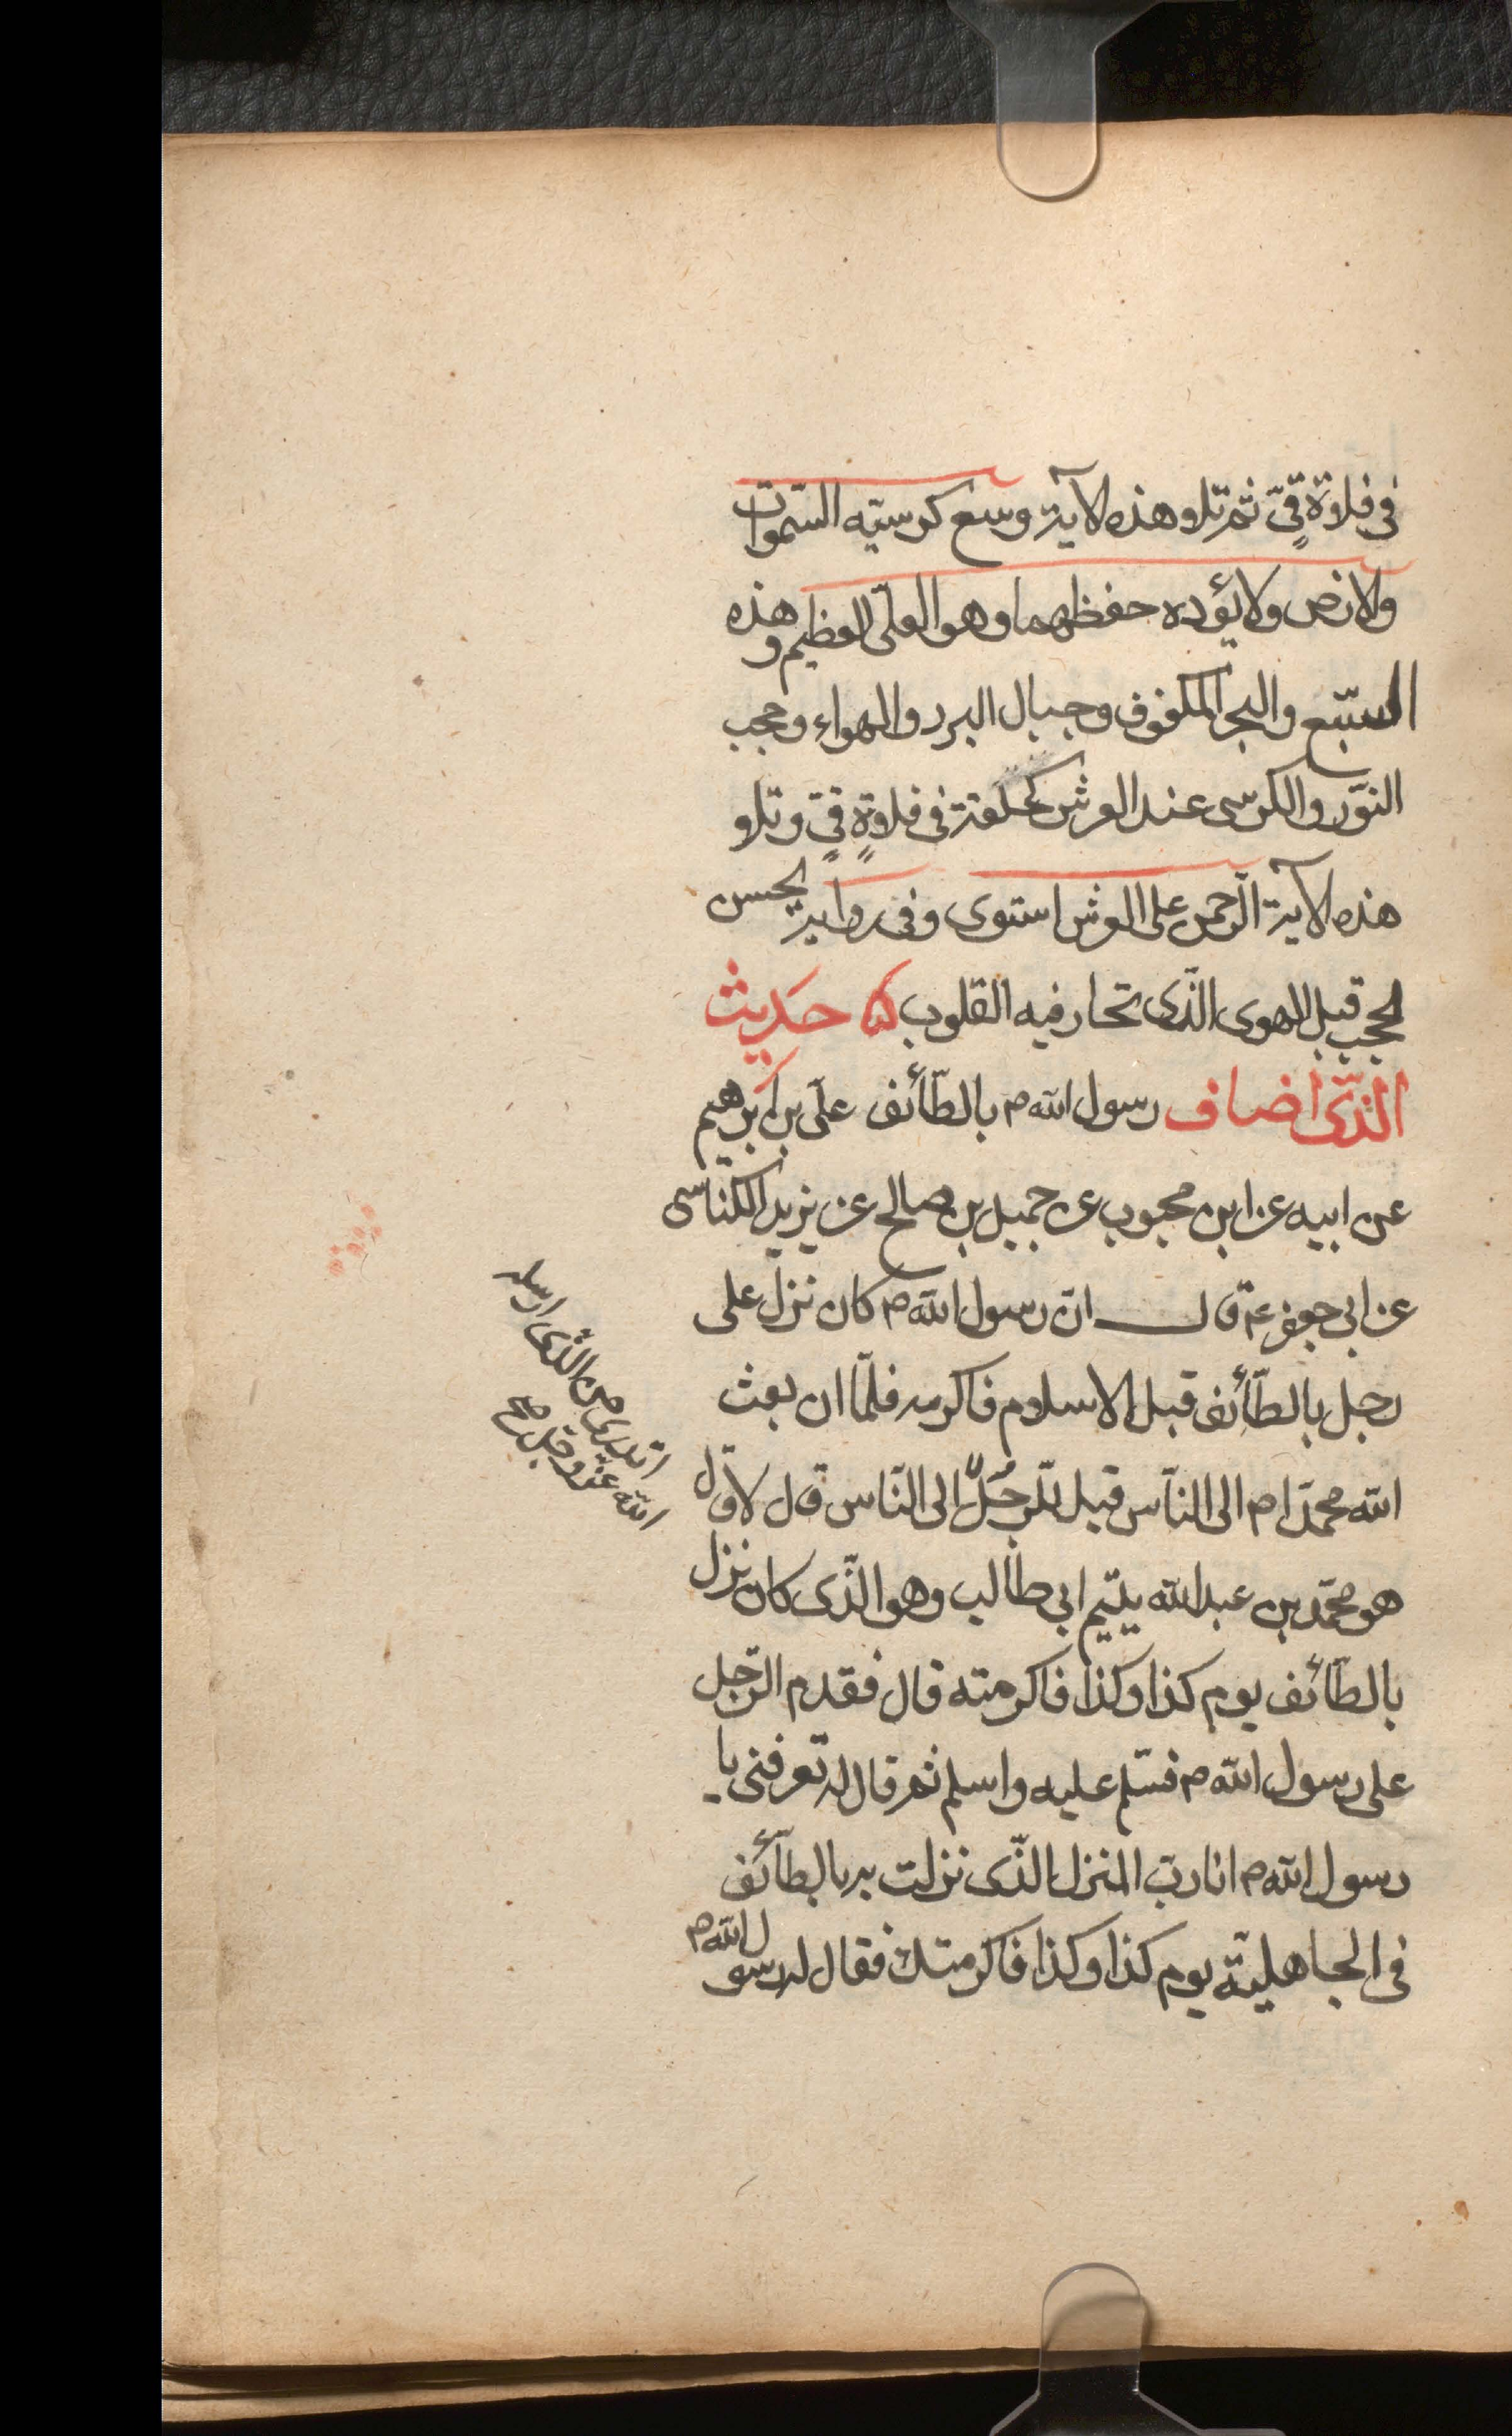 فى فلاوة قىٍّ ثم تلا هذه الآية وسع كرسيّه السّموات
والارض ولا يؤده حفظهما وهو العلىّ العظيم وهذه
السّبع والبحر المكفوف وجبال البرد والهواء وحجب
النّور والكرسى عند العرش كحلقة فى فلاوةٍ قىٍّ وتلا
هذه الآية الرّحمن على العرش استوى وفى رواية الحسن
الحجب قبل الهوى الّذى تحار فيه القلوب حَديث
الّذى اضاف رسول الله ص بالطّائف علىّ بن ابرهيم
عن ابيه عن ابن محبوب عن جميل بن صالح عن يزيد الكناسى
عن ابى جعفر ع قال انّ رسول الله ص كان نزل على
رجل بالطّائف قبل الاسلام فاكرمه فلمّا ان بعث
الله محمّدا ص الى النّاس قيل للرّجُل الى النّاس قال لا قال
هو محمّد بن عبد الله يتيم ابى طالب وهو الّذى كان نزل
بالطّائف يوم كذا وكذا فاكرمته قال فقدم الرّجل
على رسول الله ص فسلّم عليه واسلم ثم قال له تعرفنى يا
رسول الله ص انا ربّ المنزل الّذى نزلت به بالطّائف
فى الجاهليّة يوم كذا وكذا فاكرمتك فقال له رسول الله ص
اتدرى من الّذى ارسله
الله عزّ وجلّ صح